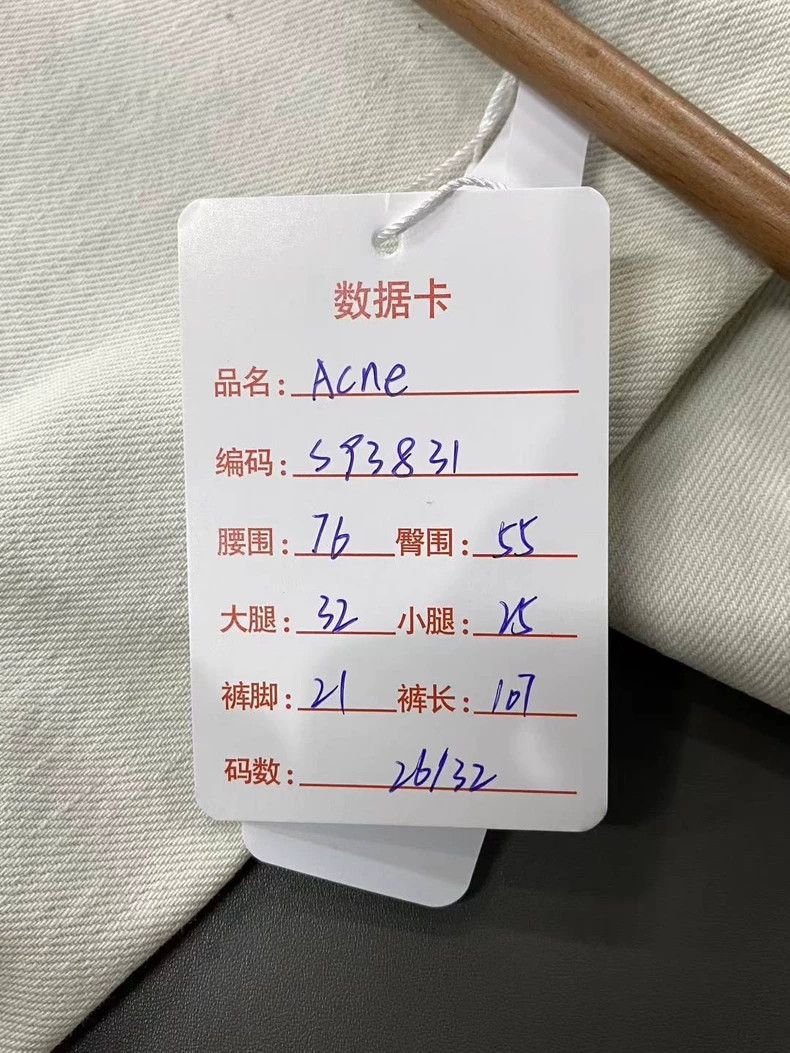 数据卡
品名: Acne
编码: S93831
腰围: 76 臀围: 55
大腿: 32 小腿: 25
裤脚: 21 裤长: 107
码数: 26/32